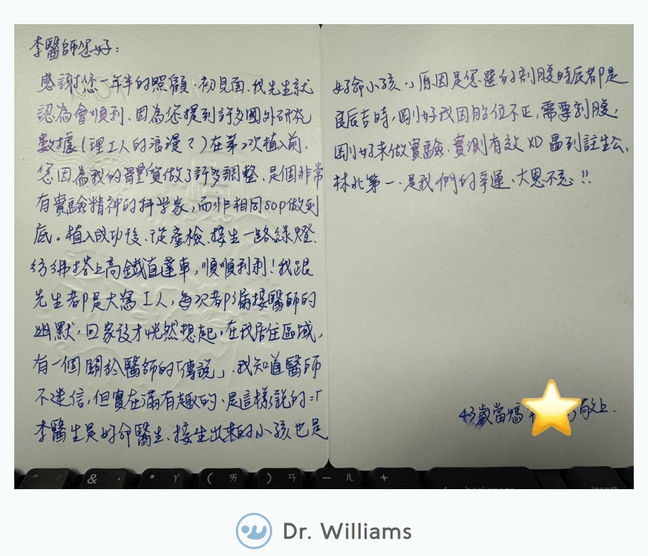 李醫師您好:
感謝您一年半的照顧,初見面,我先生就
認為會順利,因為您提到許多國外研究
數據(理工人的浪漫?)在第2次植入前,
您因為我的體質做了許多調整,是個非常
有實驗精神的科學家,而非相同SOP做到
底。植入成功後,從產檢、接生一路綠燈,
彷彿搭上高鐵直達車,順順利利!我跟
先生都是大客工人,每次都漏接醫師的
幽默,回家後才恍然想起。在我居住區域,
有一個關於醫師的「傳說」,我知道醫師
不迷信,但實在滿有趣的,是這樣說的:「
李醫生是好命醫生,接生出來的小孩也是
好命小孩。」原因是您選的剖腹時辰都是
良辰吉時,剛好我因胎位不正,需要剖腹,
剛好來做實驗,實測有效 XD 遇到註生公,
林北第一,是我們的幸運,大恩不忘!!
43歲當媽 敬上.
& * ㄚ ( ㄞ ) ㄢ ㄦ +
Dr. Williams